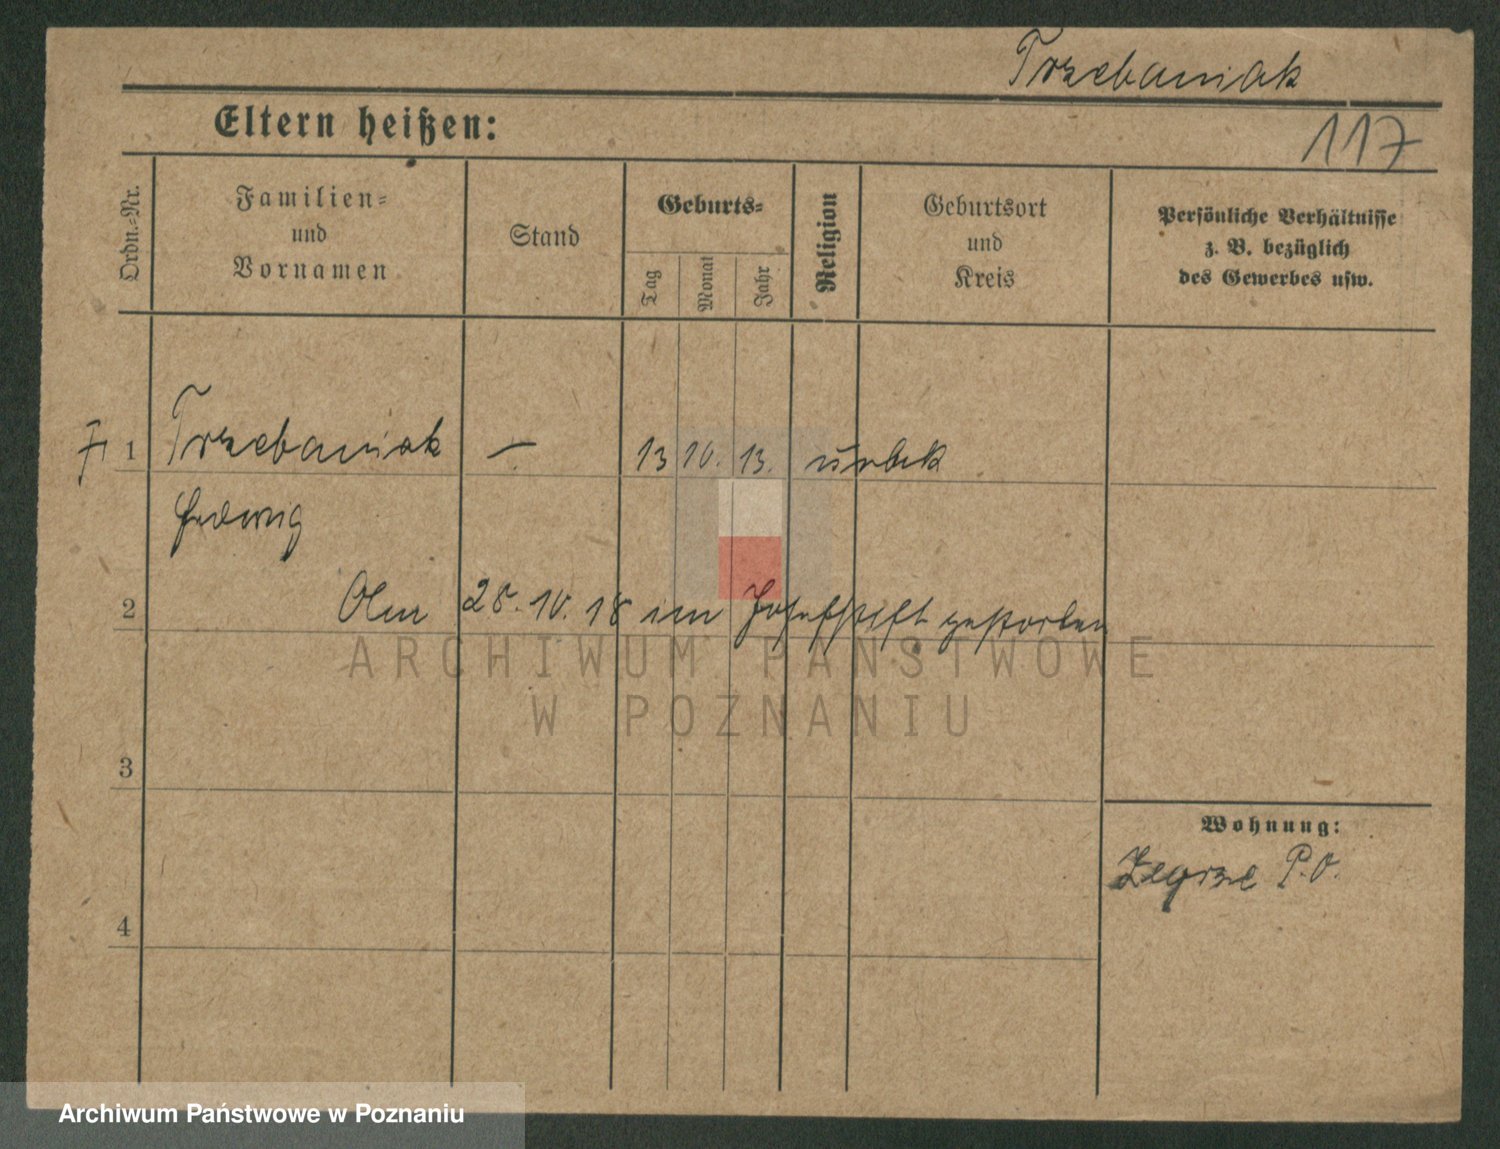 Trzebaniak
Eltern heißen:
117
Ordn.-Nr.
Familien-
und
Vornamen
Stand
Geburts-
Tag
Monat
Jahr
Religion
Geburtsort
und
Kreis
Persönliche Verhältnisse
z. B. bezüglich
des Gewerbes usw.
1 Trzebaniak — 13 10. 13. unbek
Hedwig
2 Am 28. 10. 18 im Josefstift gestorben
ARCHIWUM PAŃSTWOWE
W POZNANIU
3
Wohnung:
Zegrze P.O.
4
Archiwum Państwowe w Poznaniu